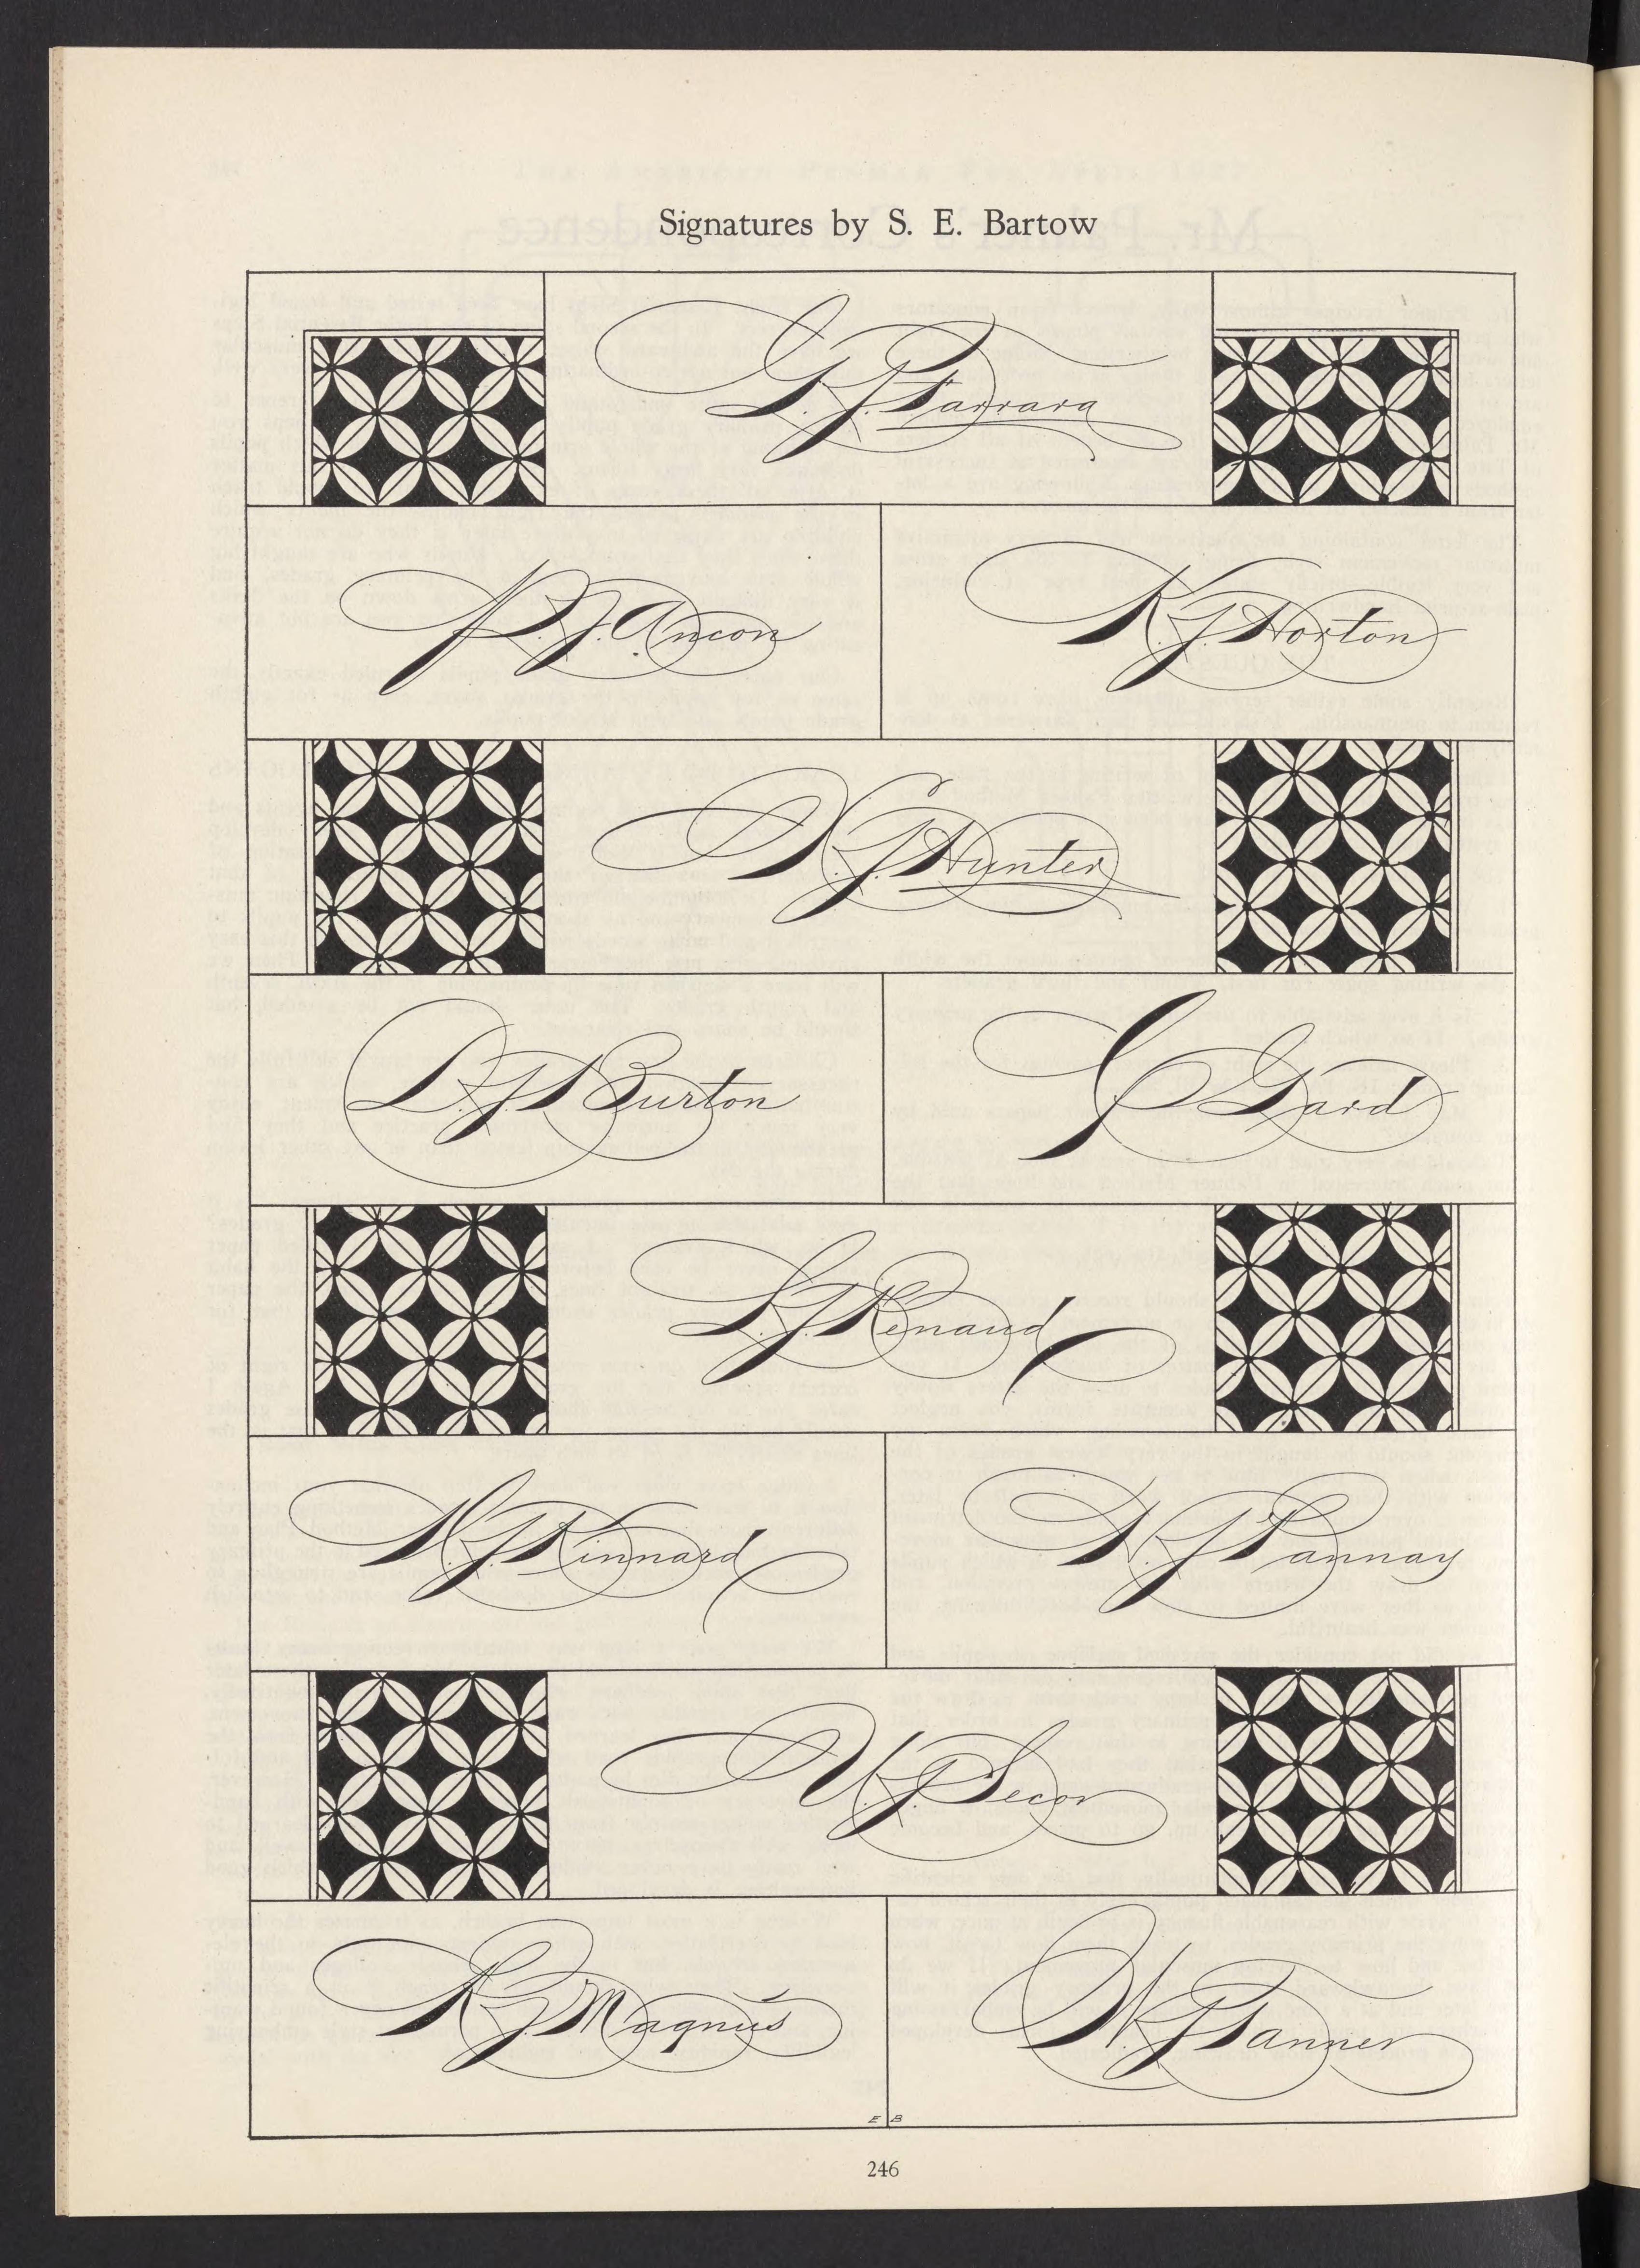 Signatures by S. E. Bartow
G. J. Farrara
P. J. Ancon
K. J. Horton
X. J. Hunter
D. J. Burton
J. Gard
L. J. Renaud
H. J. Kinnard
N. J. Pannay
V. J. Secor
R. J. Magnus
W. J. Tanner
E B
246